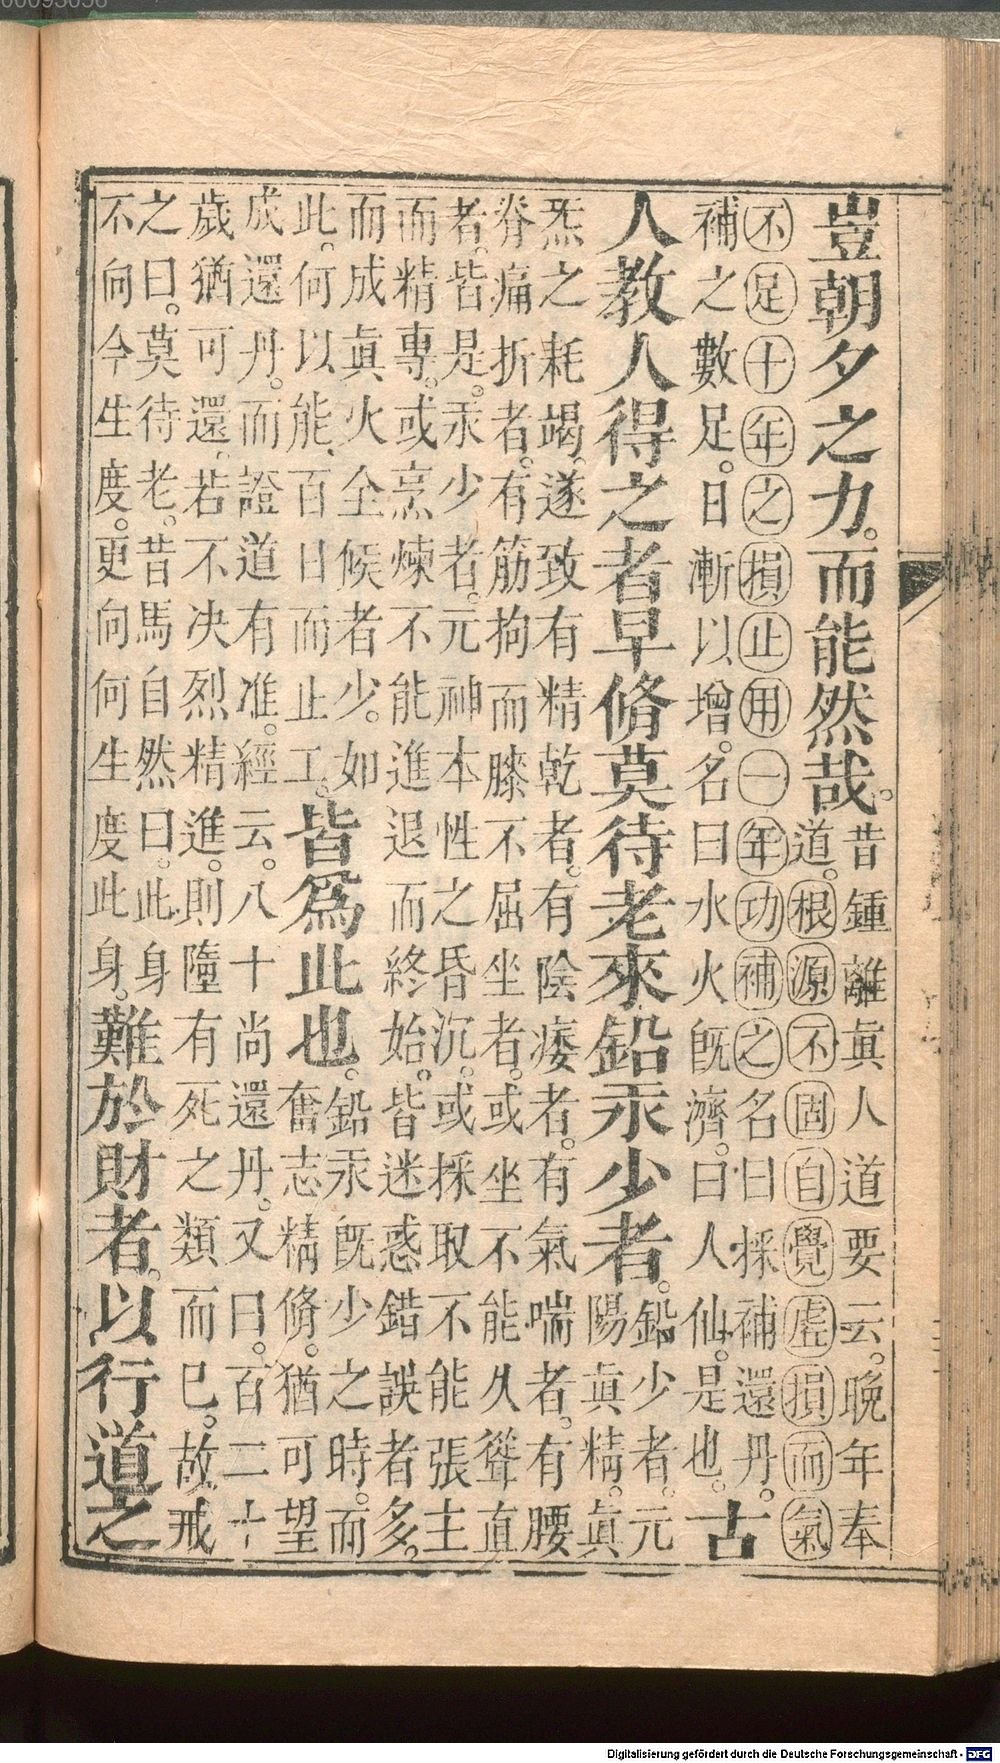 豈朝夕之力。而能然哉。
昔鍾離眞人道要云。晚年奉
道。根源不固自覺虛損而氣
不足十年之損止用一年功補之名曰採補還丹。
補之數足。日漸以增。名曰水火旣濟。曰人仙。是也。
古
人教人得之者早脩莫待老來鉛汞少者。
鉛少者。元
陽眞精。眞
炁之耗竭。遂致有精乾者。有陰痿者。有氣喘者。有腰
脊痛折者。有筋拘而膝不屈坐者。或坐不能久聳直
者。皆是。汞少者。元神本性之昏沉。或採取不能張主
而精專。或烹煉不能進退而終始。皆迷惑錯誤者多。
而成眞火全候者少。如
此。何以能、百日而止工。
皆爲此也。
鉛汞旣少之時。而
奮志精脩。猶可望
成還丹。而證道有准。經云。八十尚還丹。又曰。百二十
歲猶可還。若不决烈精進。則墮有死之類而已。故戒
之曰。莫待老。昔馬自然曰。此身
不向今生度。更向何生度此身。
難於財者。以行道之
Digitalisierung gefördert durch die Deutsche Forschungsgemeinschaft - DFG